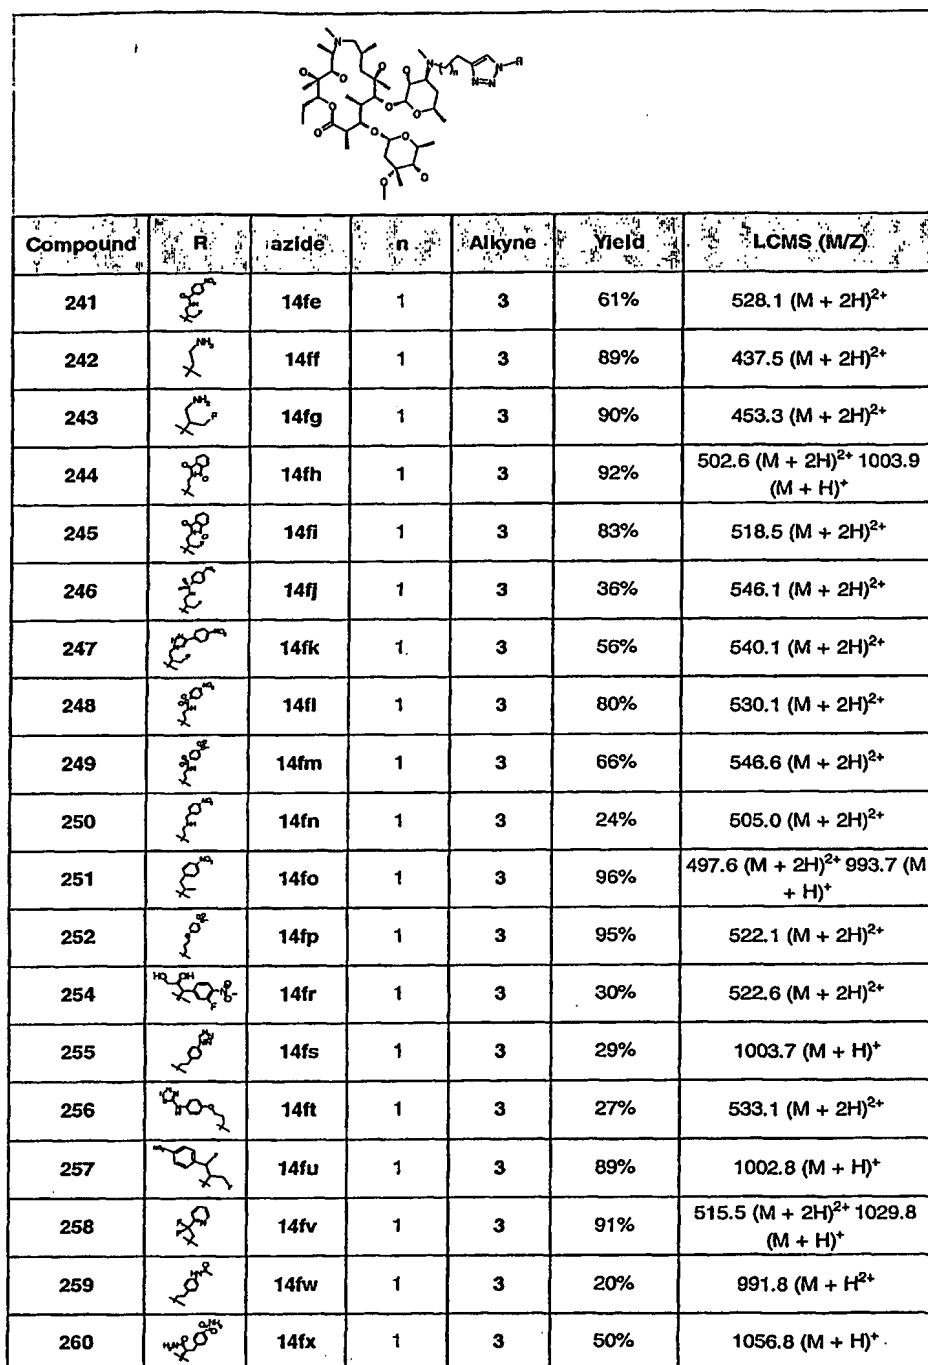 Compound R azide n Alkyne Yield LCMS (M/Z)
241 14fe 1 3 61% 528.1 (M + 2H)²⁺
242 NH₂ 14ff 1 3 89% 437.5 (M + 2H)²⁺
243 NH₂ F 14fg 1 3 90% 453.3 (M + 2H)²⁺
244 14fh 1 3 92% 502.6 (M + 2H)²⁺ 1003.9
(M + H)⁺
245 14fi 1 3 83% 518.5 (M + 2H)²⁺
246 14fj 1 3 36% 546.1 (M + 2H)²⁺
247 14fk 1 3 56% 540.1 (M + 2H)²⁺
248 14fl 1 3 80% 530.1 (M + 2H)²⁺
249 14fm 1 3 66% 546.6 (M + 2H)²⁺
250 14fn 1 3 24% 505.0 (M + 2H)²⁺
251 14fo 1 3 96% 497.6 (M + 2H)²⁺ 993.7 (M
+ H)⁺
252 14fp 1 3 95% 522.1 (M + 2H)²⁺
254 HO OH F 14fr 1 3 30% 522.6 (M + 2H)²⁺
255 14fs 1 3 29% 1003.7 (M + H)⁺
256 14ft 1 3 27% 533.1 (M + 2H)²⁺
257 14fu 1 3 89% 1002.8 (M + H)⁺
258 14fv 1 3 91% 515.5 (M + 2H)²⁺ 1029.8
(M + H)⁺
259 14fw 1 3 20% 991.8 (M + H²⁺
260 14fx 1 3 50% 1056.8 (M + H)⁺